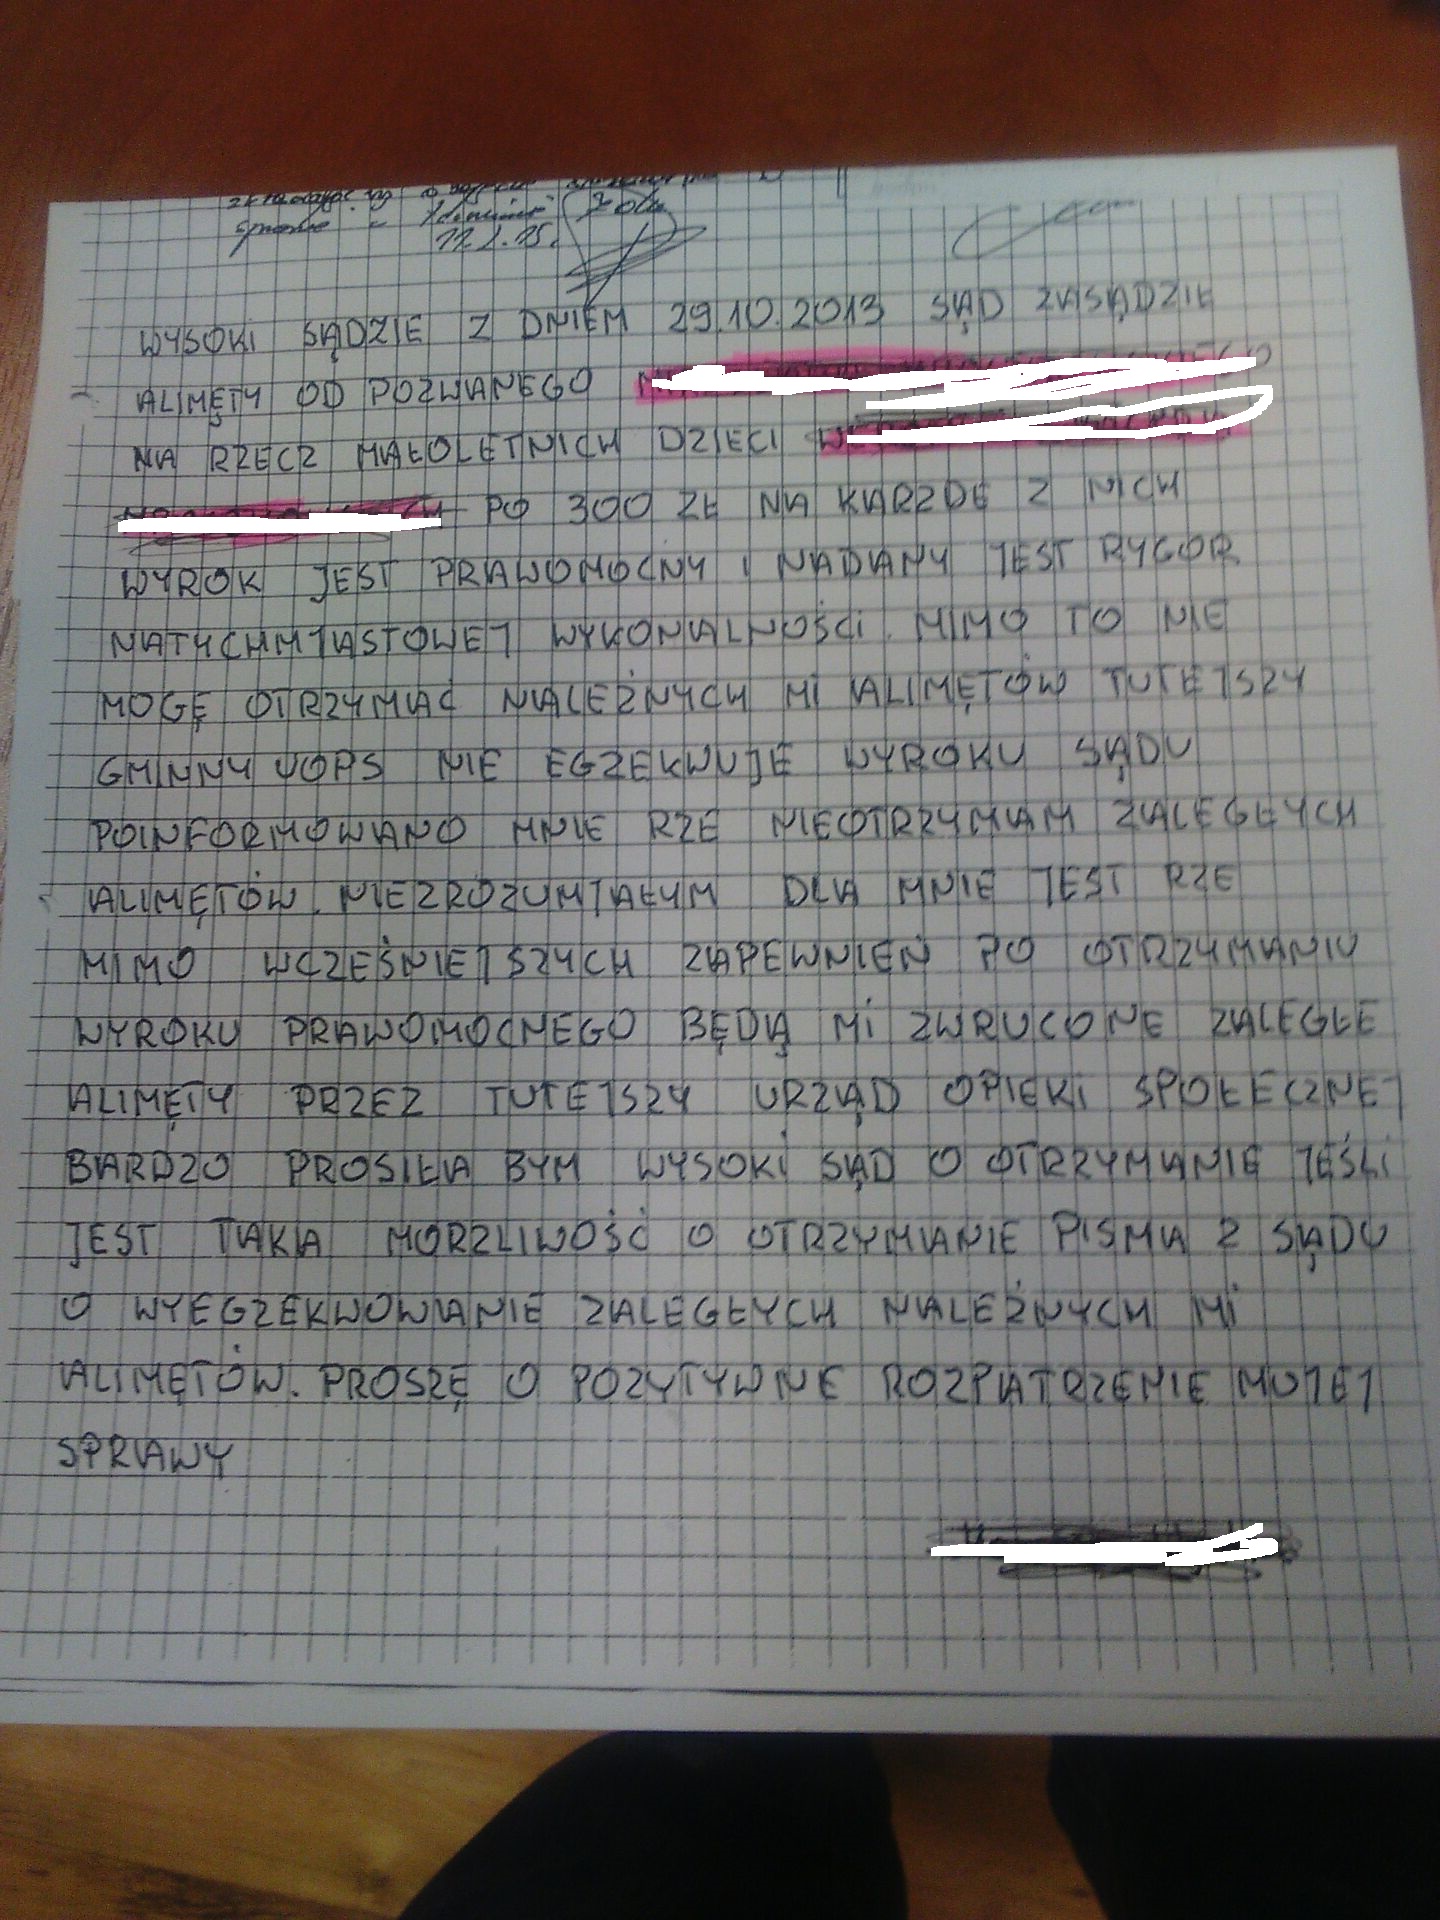 17.8.15.
WYSOKI SĄDZIE Z DNIEM 29.10.2013 SĄD ZASĄDZIE
ALIMĘTY OD POZWANEGO
NA RZECZ MAŁOLETNICH DZIECI
PO 300 ZŁ NA KARZDE Z NICH
WYROK JEST PRAWOMOCNY I NADANY JEST RYGOR
NATYCHMIASTOWEJ WYKONALNOŚCI. MIMO TO NIE
MOGĘ OTRZYMAĆ NALEŻNYCH MI ALIMĘTÓW TUTEJSZY
GMINNY UOPS NIE EGZEKWUJE WYROKU SĄDU
POINFORMOWANO MNIE RZE NIEOTRZYMAM ZALEGŁYCH
ALIMĘTÓW. NIEZROZUMIAŁYM DLA MNIE JEST RZE
MIMO WCZEŚNIEJSZYCH ZAPEWNIEŃ PO OTRZYMANIU
WYROKU PRAWOMOCNEGO BĘDĄ MI ZWRUCONE ZALEGŁE
ALIMĘTY PRZEZ TUTEJSZY URZĄD OPIEKI SPOŁECZNEJ
BARDZO PROSIŁA BYM WYSOKI SĄD O OTRZYMANIE JEŚLI
JEST TAKA MORZLIWOŚĆ O OTRZYMANIE PISMA Z SĄDU
O WYEGZEKWOWANIE ZALEGŁYCH NALEŻNYCH MI
ALIMĘTÓW. PROSZĘ O POZYTYWNE ROZPATRZENIE MOJEJ
SPRAWY